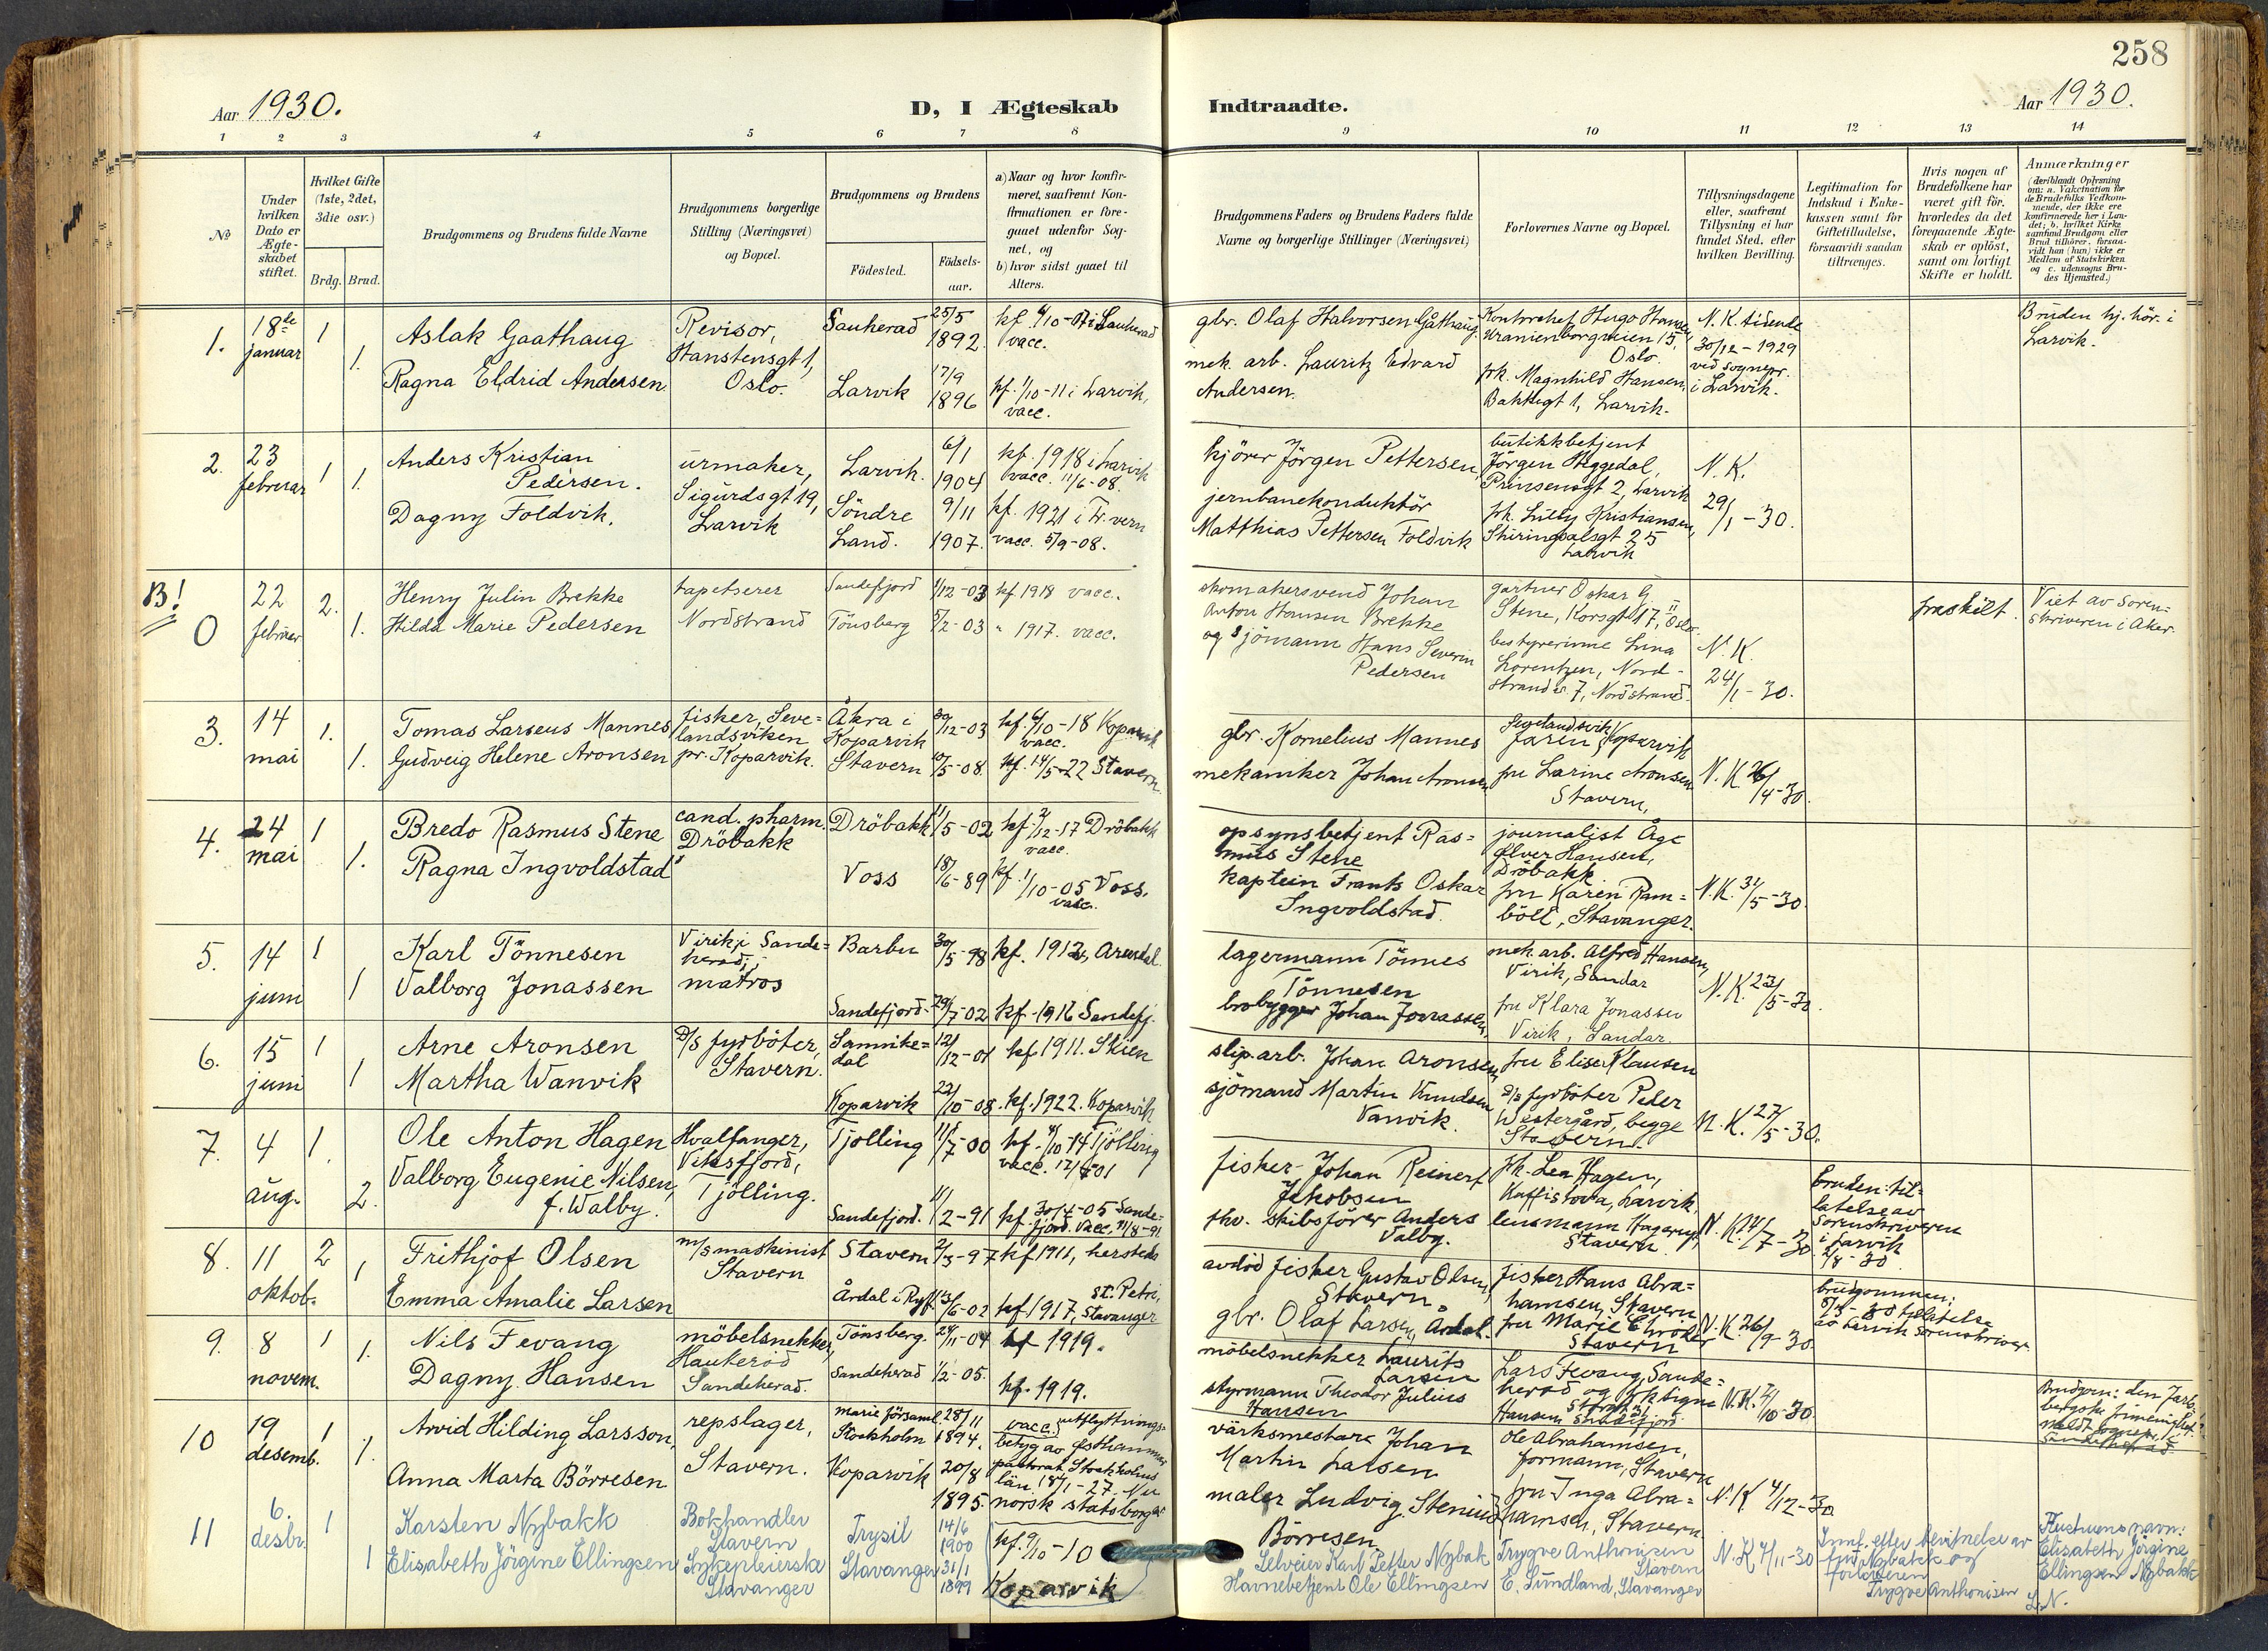 258
Aar 1930.
D, I Ægteskab
Indtraadte.
Aar 1930.
1 2 3 4 5 6 7 8 9 10 11 12 13 14
№
Under hvilken Dato er Ægteskabet stiftet.
Hvilket Gifte (1ste, 2det, 3die osv.)
Brdg. Brud.
Brudgommens og Brudens fulde Navne
Brudgommens borgerlige Stilling (Næringsvei) og Bopæl.
Brudgommens og Brudens
Födested.
Födselsaar.
a) Naar og hvor konfirmeret, saafremt Konfirmationen er foregaaet udenfor Sognet, og
b) hvor sidst gaaet til Alters.
Brudgommens Faders og Brudens Faders fulde Navne og borgerlige Stillinger (Næringsvei)
Forlovernes Navne og Bopæl.
Tillysningsdagene eller, saafremt Tillysning ei har fundet Sted, efter hvilken Bevilling.
Legitimation for Indskud i Enkekassen samt for Giftetilladelse, forsaavidt saadan tiltrænges.
Hvis nogen af Brudefolkene har været gift för, hvorledes da det foregaaende Ægteskab er oplöst, samt om lovligt Skifte er holdt.
Anmærkninger
(deriblandt Oplysning om: a. Vakcination for de Brudefolks Vedkommende, der ikke ere konfirmerede her i Landet; b. hvilket Kirkesamfund Brudgom eller Brud tilhörer, forsaavidt han (hun) ikke er Medlem af Statskirken og c. udensogns Brudes Hjemsted.)
1. 18de januar 1 1.
Aslak Gaathaug
Ragna Eldrid Andersen
Revisor, Hanstensgt 1, Oslo.
Sauherad 25/5 1892
Larvik 17/9 1896
kf. 1/10-11 i Larvik, vacc.
gbr. Olaf Halvorsen Gåthaug
mek. arb. Lauritz Edvard Andersen.
Kontorchef Hugo Hansen, Uranienborgveien 15, Oslo
frk. Magnhild Hansen, Larvik.
N. K. tidende 30/12-1929 ved sognepr. i Larvik.
Bruden hj. hör. i Larvik.
2. 23 februar 1 1.
Anders Kristian Pedersen.
Dagny Foldvik.
urmaker, Sigurdsgt 19, Larvik
Larvik. 6/1 1904
Söndre Land. 9/11 1907.
kf. 1918 i Larvik vacc. 11/6-08.
kf. 1921 i Fr.vern vacc. 5/9-08.
kjörer Jörgen Pettersen
jernbanekonduktör Matthias Pettersen Foldvik
butikkbetjent Jörgen Heggedal, Prinsensgt 2, Larvik
frk. Lilly Kristiansen, Skiringsalsgt 25 Larvik
N. K. 29/1-30.
B! 0 22 februar 2. 1.
Henry Julin Brekke
Hilda Marie Pedersen
tapetserer Nordstrand
Sandefjord 1/12-03 kf 1918 vacc.
Tönsberg 5/2-03 " 1917. vacc.
skomakersvend Johan Anton Hansen Brekke
og sjömann Hans Severin Pedersen
gartner Oskar G. Stene, Korsgt 17, II Oslo.
bestyrerinne Lina Lorentzen, Nordstrandv. 7, Nordstrand.
N. K. 24/1-30.
fraskilt.
Viet av sorenskriveren i Aker.
3. 14 mai 1. 1.
Tomas Larseus Mannes
Gudveig Helene Aronsen
fisker, Sevelandsviken pr. Koparvik.
Åkra i Koparvik 30/12-03 kf. 6/10-18 Koparvik vacc.
Stavern 10/5-08. kf. 14/5-22 Stavern.
gbr. Kornelius Mannes
mekaniker Johan Aronsen
fru Larine Aronsen Stavern.
N. K 26/4-30.
4. 24 mai 1 1.
Bredo Rasmus Stene
Ragna Ingvoldstad
cand. pharm. Dröbakk
Dröbakk 11/5-02 kf. 2/12-17 Dröbakk vacc.
Voss 18/6-89 kf. 1/10-05 Voss. vacc.
opsynsbetjent Rasmus Stene
kaptein Frants Oskar Ingvoldstad.
journalist Åge Ølver Hansen, Dröbakk
fru Karen Ramböll, Stavanger.
N. K. 31/5-30.
5. 14 juni 1 1
Karl Tönnesen
Valborg Jonassen
Virik i Sandeherad, matros
Barbu 30/5-98 kf. 1912, Arendal.
Sandefjord 29/7-02 kf. 1916 Sandefj.
lagermann Tönnes Tönnesen
brobygger Johan Jonassen.
mek. arb. Alfred Hansen, Virik, Sandar
fru Klara Jonassen Virik, Sandar.
N. K. 23/5-30.
6. 15 juni 1 1
Arne Aronsen
Martha Wanvik
D/S fyrböter, Stavern.
Sannikedal 12/12-01 kf 1911. Skien
Koparvik 22/10-08. kf. 1922. Koparvik
slip.arb. Johan Aronsen,
sjömand Martin Knudsen Vanvik.
fru Elise Klausen
D/S fyrböter Peder Westergård, begge Stavern.
N. K. 27/5-30.
7. 4 aug. 1. 2.
Ole Anton Hagen
Valborg Eugenie Nilsen, f. Walby.
Hvalfanger, Viksfjord, Tjölling.
Tjölling 11/7-00 kf. 4/10-14 Tjölling
Sandefjord. 1/2-91
fisker Johan Reinert Jakobsen
fhv. skibsförer Anders Valby.
frk. Lea Hagen, Kaffistova, Larvik,
lensmann Hagerup, Stavern.
N. K. 14/7-30
bruden: tillatelse av Sorenskriveren i Larvik 2/8-30
8. 11 oktob. 2 1
Frithjof Olsen
Emma Amalie Larsen
m/s maskinist Stavern
Stavern 2/3-97 kf 1911, hersteds
Årdal i Ryf. 13/6-02 kf 1917, St. Petri, Stavanger
avdöd fisker Gustav Olsen, Stavern.
gbr. Olaf Larsen, Årdal.
fisker Hans Abrahamsen, Stavern
fru Marie Stavern
N. K. 26/9-30.
brudgommen: tillatelse av Larvik Sorenskriver.
9. 8 novem. 1 1.
Nils Fevang
Dagny Hansen
möbelsnekker, Haukeröd Sandeherad.
Tönsberg. 24/11-04 kf 1919.
Sandeherad 1/2-05. kf. 1919.
möbelsnekker Laurits Larsen
styrmann Theodor Julius Hansen
Lars Fevang, Sandeherad og frk Signe Hansen Sandefjord.
N. K. /10-30
10 19 desemb. 1 1.
Arvid Hilding Larsson,
Anna Marta Börresen
repslager, Stavern.
Maria församl. Stockholm 28/11 1894.
Koparvik 20/8 1895.
vacc. utflyttningsbetyg av Østhammar pastorat Stockholms län. 18/1-27. Nu norsk statsborger
värksmestare Johan Martin Larsen
maler Ludvig Stenius Börresen.
Ole Abrahamsen, formann, Stavern
fru Inga Abrahamsen, Stavern
N. K 4/12-30
11 6. desbr. 1 1
Karsten Nybakk
Elisabeth Jörgine Ellingsen
Bokhandler Stavern
Sykepleierske Stavanger
Trysil 14/6 1900
Stavanger 31/1 1899
kf. 9/10-10 Koparvik
Selveier Karl Petter Nybak
Havnebetjent Ole Ellingsen
Trygve Anthonisen Stavern
E. Sundland, Stavanger
N. K 4/11-30
Innf. efter bevitnelse av fru Nybakk og forloveren Trygve Anthonisen
Hustruens navn: Elisabeth Jörgine Ellingsen Nybakk
L. N.